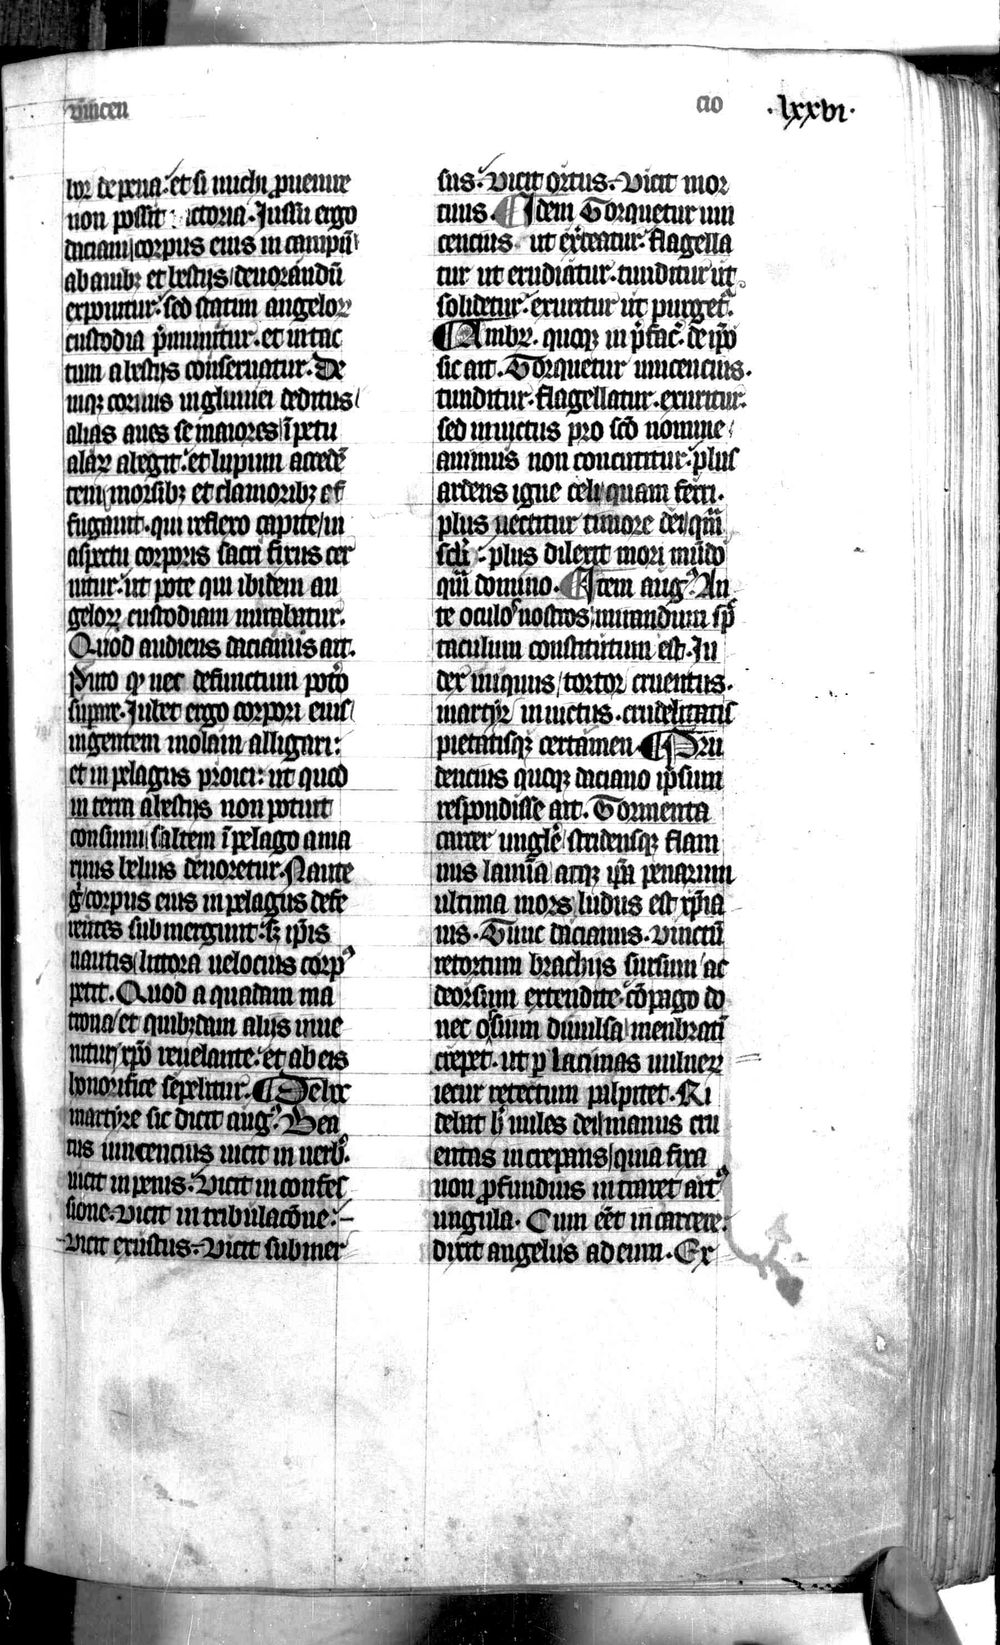 vincen
cio
.lxxvi.
lor de pena. et si michi ꝓuenire
non possit ictoria. Jussu ergo
daciani corpus eius in campū
ab auibꝫ et bestijs deuorandū
exponitur. sed statim angeloꝝ
custodia p̄munitur. et intac
tum a bestijs conseruatur. De
niqꝫ coruus ingluuiei deditus
alias aues se maiores īpetu
alaꝝ abegit. et lupum accedē
tem morsibꝫ et clamoribꝫ ef
fugauit. qui reflexo capite in
aspectu corporis sacri fixus cer
nitur. ut pote qui ibidem an
geloꝝ custodiam mirabatur.
Quod audiens dacianus ait.
Puto ꝙ nec defunctum pot̉o
suꝑare. Jubet ergo corpori eius
ingentem molam alligari:
et in pelagus proici: ut quod
in terra a bestijs non potuit
consumi saltem ī pelago a ma
rinis beluis deuoretur. Naute
g̉ corpus eius in pelagus defe
rentes submergunt. sꝫ ip̄is
nautis littora uelocius corpꝰ
petit. Quod a quadam ma
trona et quibꝫdam alijs inue
nitur xp̄o reuelante. et ab eis
honorifice sepelitur. ¶De hoc
martyre sic dicit augꝰ. Bea
tus uincencius uicit in uerb̉.
uicit in penis. Vicit in confes
sione. vicit in tribulacōne.
vicit exustus. Vicit submer
sus. vicit ortus. Vicit mor
tuus. ¶Idem Torquetur uin
cencius ut ex̉ceatur. flagella
tur ut erudiatur. tunditur ut
solidetur. exuritur ut purget̉.
¶Ambꝝ. quoqꝫ in p̄fac̉. de ip̄o
sic ait. Torquetur uincencius.
tunditur. flagellatur. exuritur.
sed inuictus pro sc̄o nomine
animus non concutitur. plus
ardens igne celi quam ferri.
plus nectitur timore dei quā
sc̄li: plus dilexit mori mūdo
quā domino. ¶Item augꝰ. An
te oculos nostros mirandum sp̄
taculum constitutum est. Ju
dex iniquus tortor cruentus.
martyr inuictus. crudelitatis
pietatisqꝫ certamen ¶Pru
dencius quoqꝫ daciano ip̄sum
respondisse ait. Tormenta
carcer ungule stridensqꝫ flam
mis lamīa atqꝫ ip̄a penarum
ultima mors ludus est xp̄ia
nis. Tunc dacianus. Vinctū
retortum brachijs sursum ac
deorsum extendite cōpago do
nec ossium diuulsa menbratī
crepet. ut ꝑ lacinias uulneꝝ
iecur retectum palpitet. Ri
debat h̉ miles dei manus cru
entas increpans quia fixa
non ꝓfundius intraret artꝰ
ungula. Cum eēt in carcere.
dixit angelus ad eum. Ex